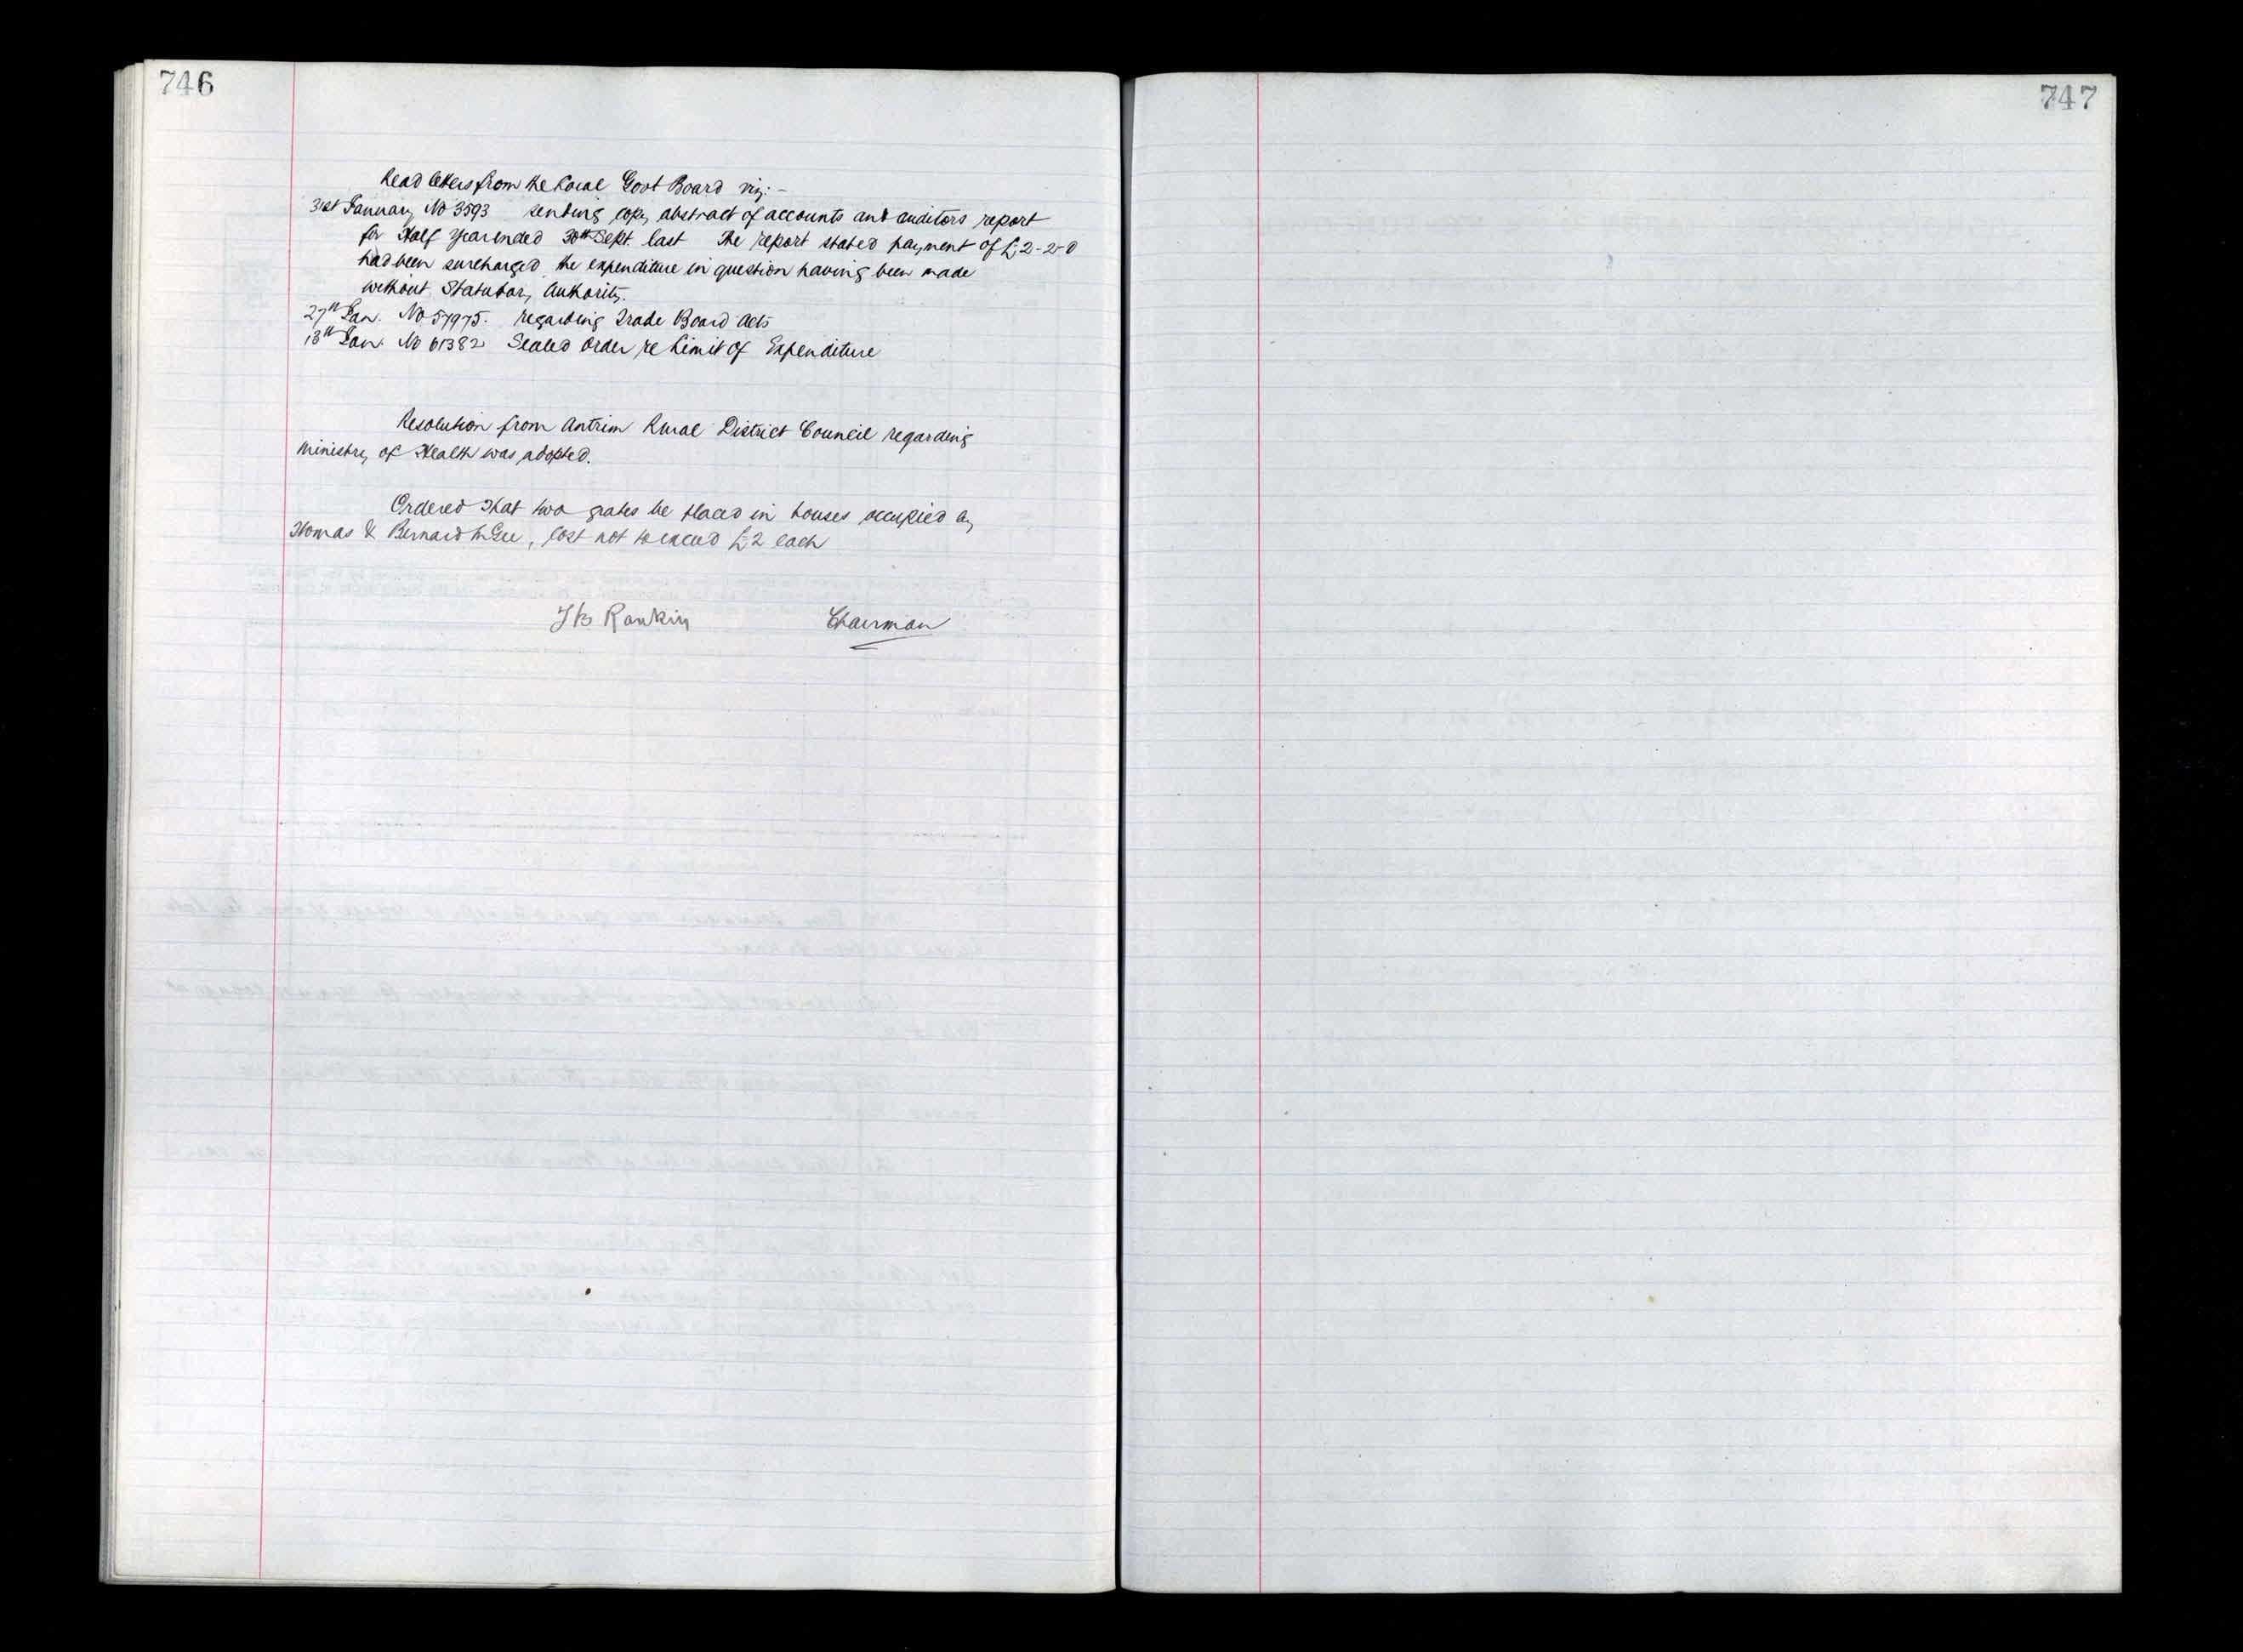 746
Read letters from the Local Govt Board viz: -
31st January No 3593 sending copy abstract of accounts and auditors report
for Half year ended 30th Sept. last The report stated payment of £2-2-0
had been surcharged the expenditure in question having been made
without Statutory Authority.
27th Jan. No 57975. regarding Trade Board Acts
13th Jan. No 61382 Sealed Order re Limit of Expenditure
Resolution from Antrim Rural District Council regarding
Ministry of Health was adopted.
Ordered That two grates be placed in houses occupied by
Thomas & Bernard McGee, cost not to exceed £2 each
J B Rankin Chairman
747